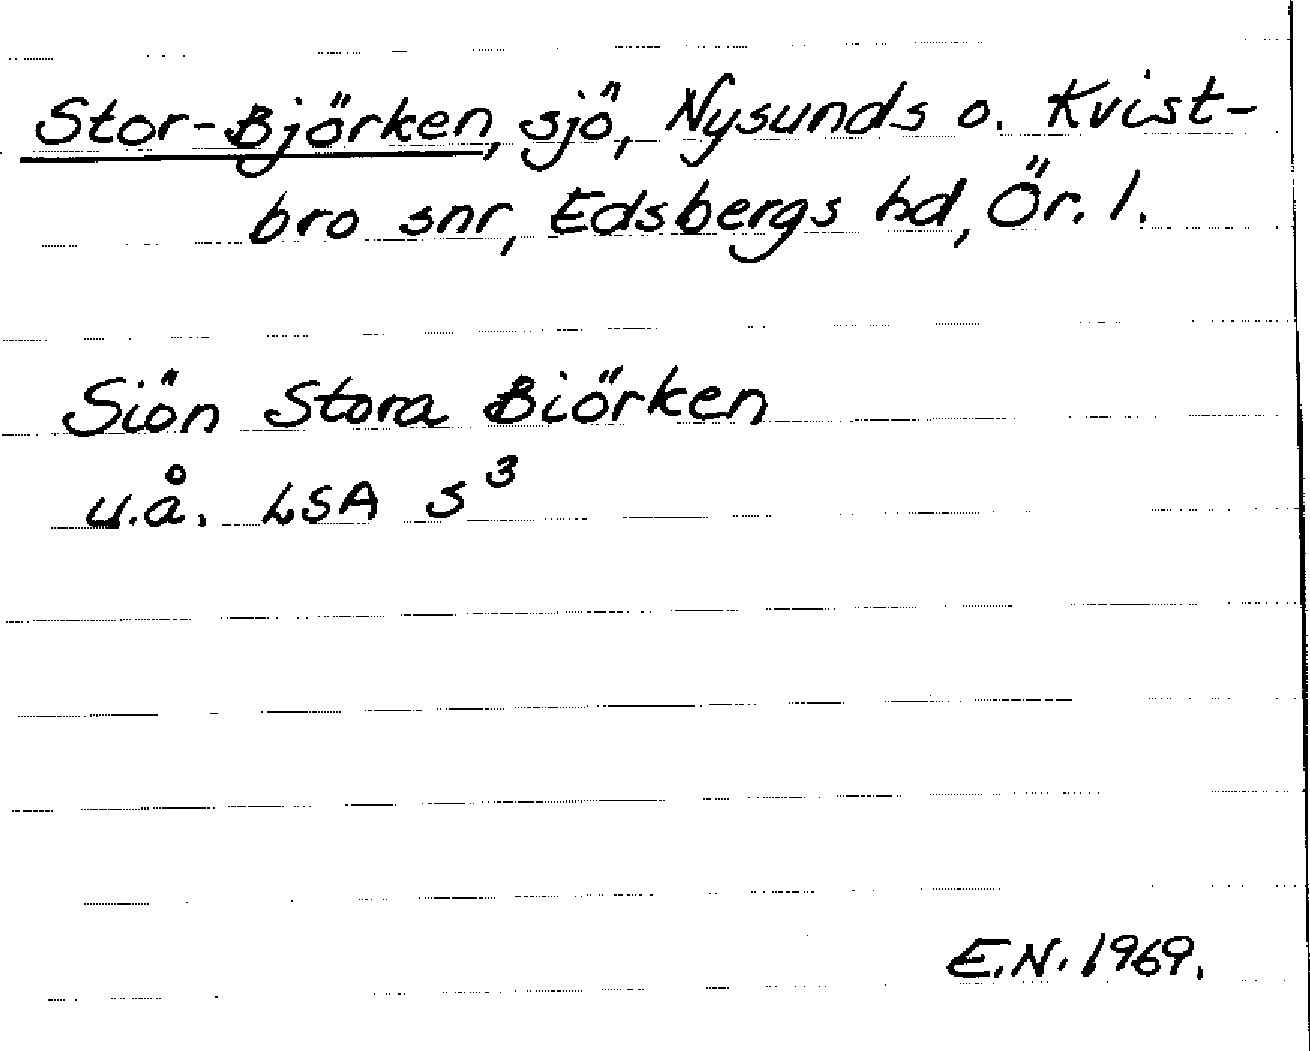 Stor-Björken, sjö, Nysunds o. Kvist-
bro snr, Edsbergs hd, Ör. l.
Siön Stora Biörken
u.å. LSA S³
E.N. 1969.